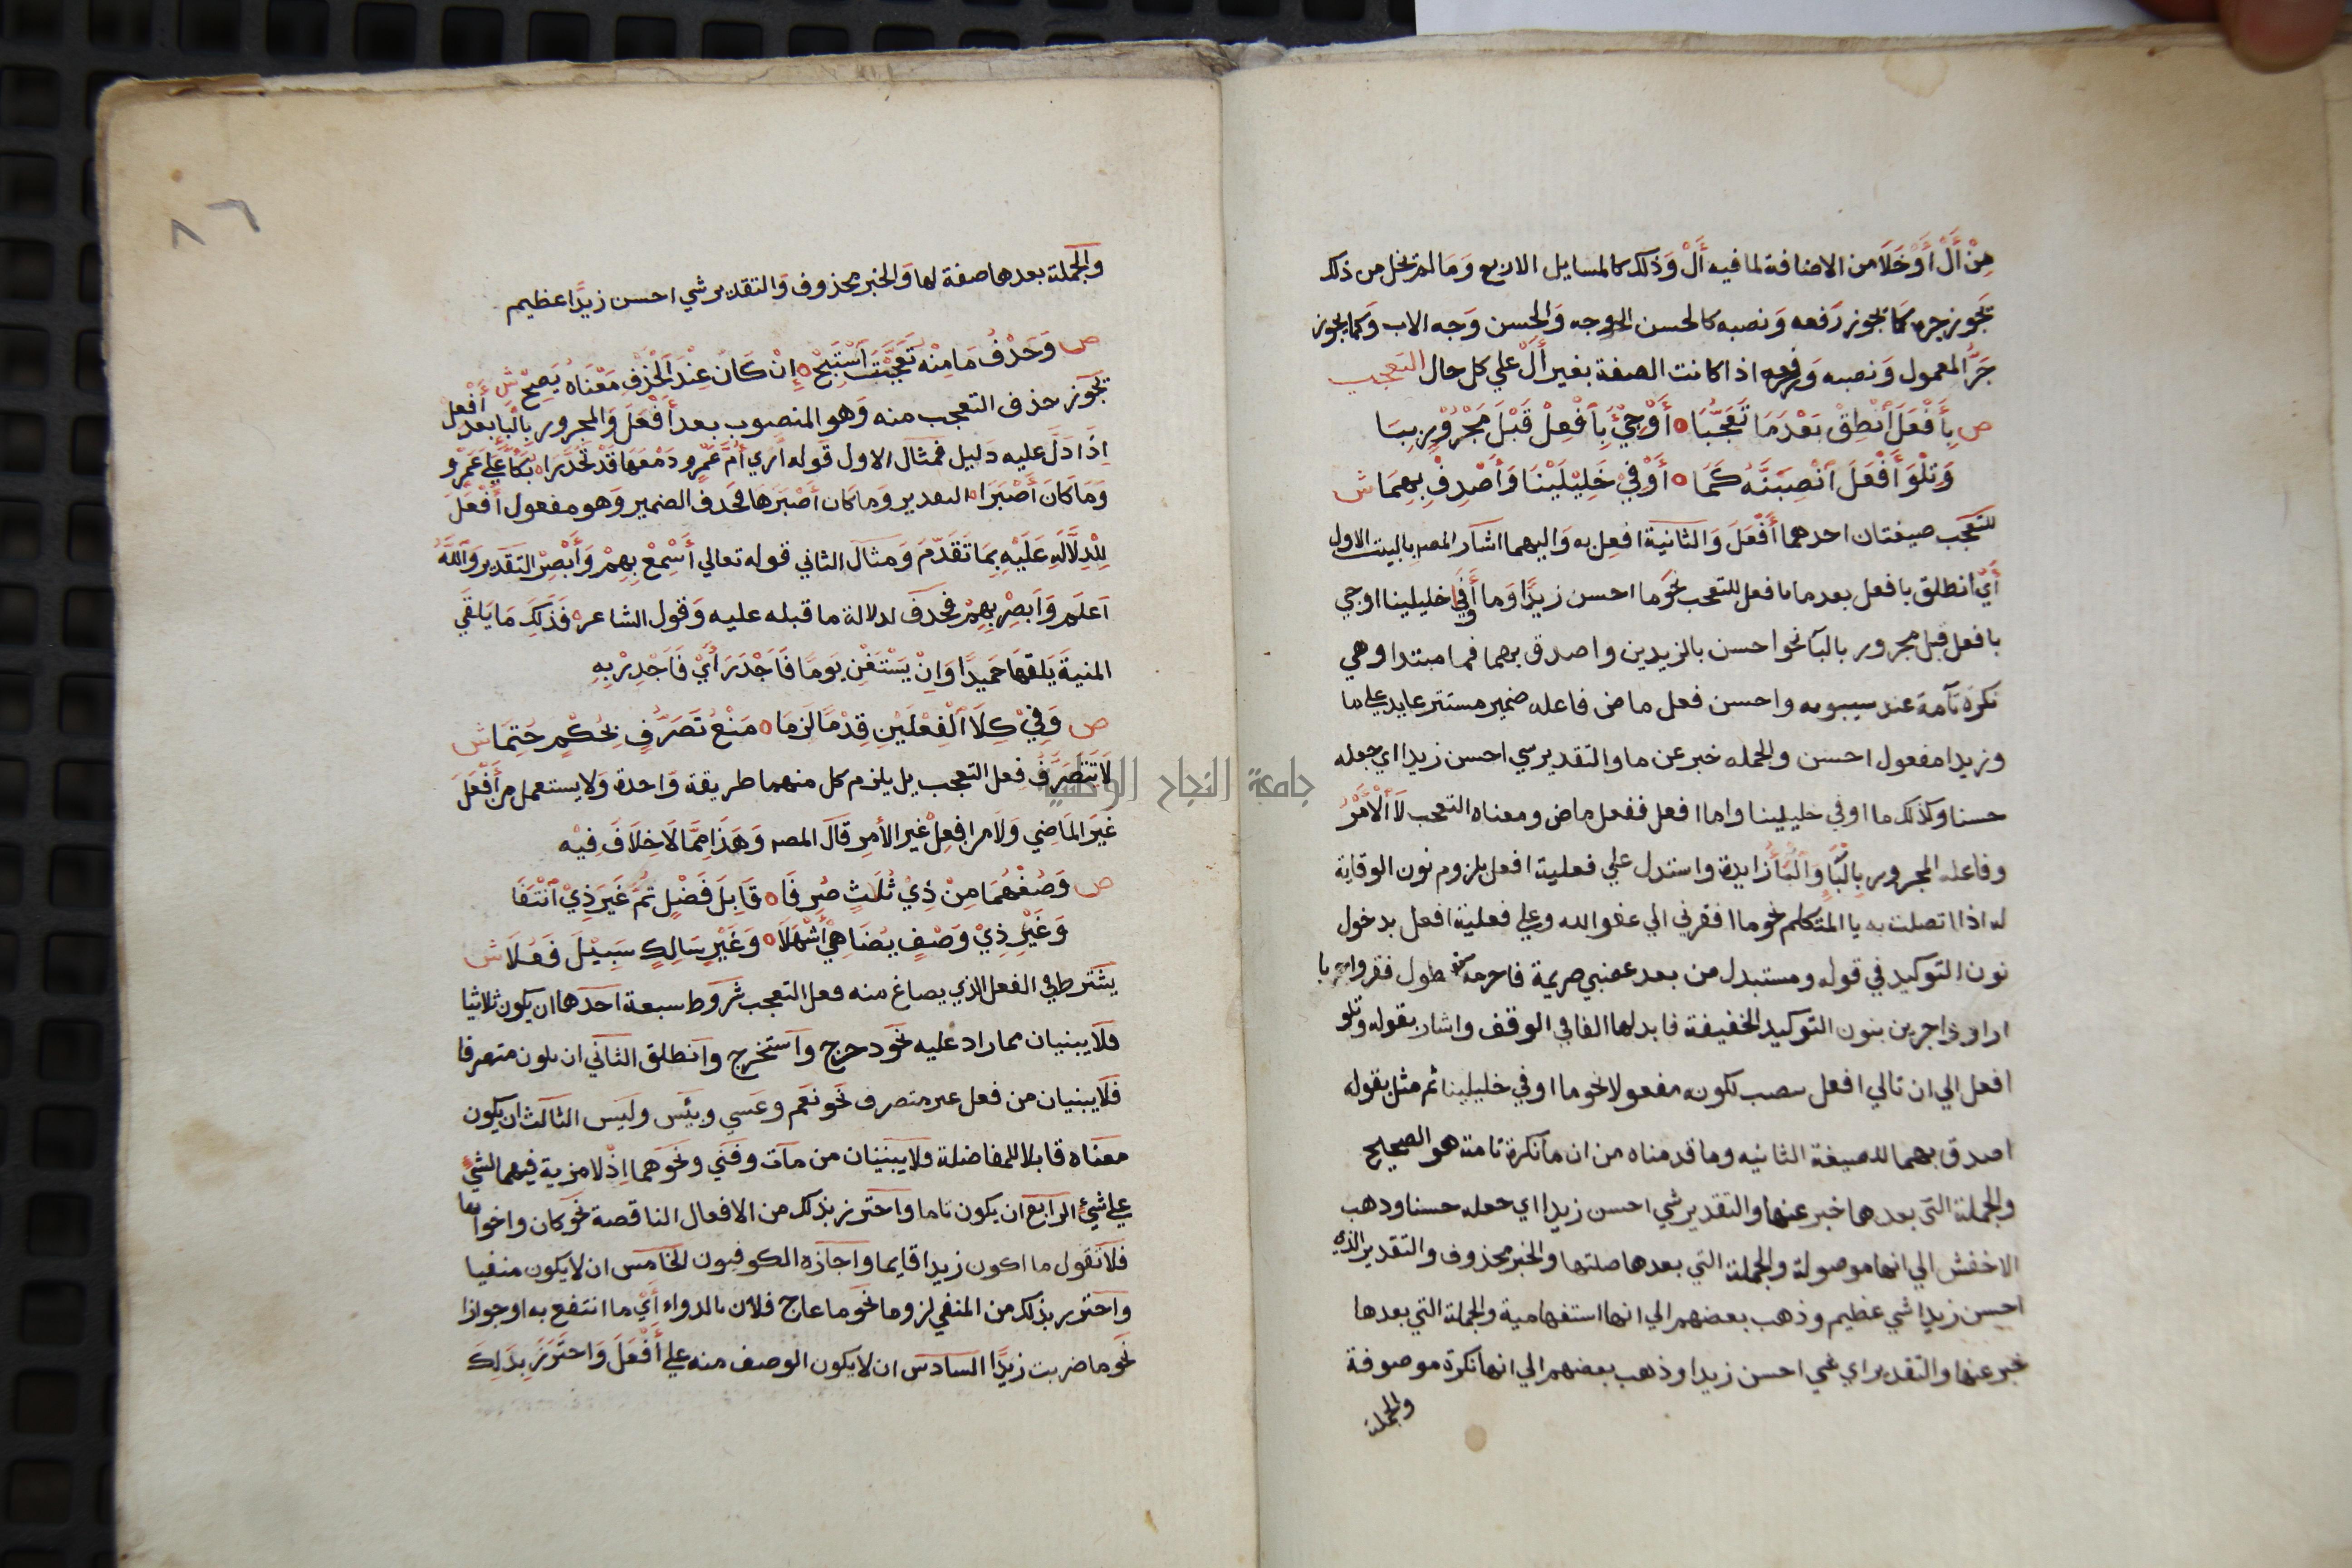 مِنْ أَلْ أَوْ خَلَا من الاضافة لما فيه أَلْ وَذلك كالمسايل الاربع وَمَا لم تخل من ذلك
تجَوز جره كمَا تجوز رَفعه وَنصبه كالحسن الوجه وَالحسن وَجه الاب وَكما يجوز
جَرُّ المعمول وَنصبه وَرفعه اذا كانت الصفة بغير أَلْ علي كل حال التعجب
ص بِأَفْعَلَ ٱنْطِقْ بَعْدَ مَا تَعَجُّبَا ه أَوْ جِئْ بِأَفْعِلْ قَبْلَ مَجْرُوْرٍ بِبَا
وَتِلْوَ أَفْعَلَ ٱنْصِبَنَّهُ كَمَا ه أَوْفِيْ خَلِيْلَيْنَا وَأَصْدِقْ بِهِمَا ش
للتعَجب صيغتان احدهما أَفْعَلَ وَالثانية افعِل به وَاليهما اشَار المصـ بالبيت الاول
أَيْ انطلق بافعل بعد ما بافعل للتعجب نحوَ ما احسن زيدًا وَما أَوفَي خليلينا اوجي
بافعل قبل مجرور بالبَا نحو احسن بالزيدين واصدق بهما فما مبتدا وهي
نكرة تآمة عند سيبويه واحسن فعل ماض فاعله ضمير مستتر عايد علي ما
وزيدا مفعول احسن والجمله خبر عن ما والتقدير شي احسن زيدا اي جعله
حسنا وكذلك ما اوفي خليلينا واما افعل ففعل ماض ومعناه التعجب لَا ٱلْأَمْرُ
وفاعله المجرور بِالْبَا وَٱلْبَأُ زايدة واستدل علي فعلية افعل بلزوم نون الوقاية
له اذا اتصلت به يا المتكلم نحو ما افقرني الي عفو الله وعلي فعلية افعل بدخول
نون التوكيد في قوله ومستبدل من بعد عضبي صريمة فاحر به من طول فقر واحريا
اراد واجرين بنون التوكيد الخفيفة فابدلها الفا في الوقف واشار بقوله وتلو
افعل الي ان تالي افعل ينصب لكونه مفعولا نحو ما اوفي خليلينا ثم مثل بقوله
اصدق بهما للصيغة الثانيه وما قدمناه من ان ما نكرة تامة هو الصحيح
والجملة التي بعدها خبر عنها والتقدير شي احسن زيدا اي جعله حسنا وذهب
الاخفش الي انها موصولة والجملة التي بعدها صلتها والخبر محذوف والتقدير الذي
احسن زيدا شي عظيم وذهب بعضهم الي انها استفهامية والجملة التي بعدها
خبر عنها والتقدير اي شي احسن زيدا وذهب بعضهم الي انها نكرة موصوفة
والجملة
٨٦
والجملة بعدها صفة لها وَالخبر محذوف وَالتقدير شي احسن زيدًا عظيم
ص وَحَذْفُ مَا مِنْهُ تَعَجَّبْتَ ٱسْتَبِحْ ه إِنْ كَانَ عِنْدَ ٱلْحَذْفِ مَعْنَاهُ يَصِحْ ش
تجَوز حذف التعجب منه وَهو المنصوب بعد أَفْعَلَ وَالمجرور بِالْبَا بعد أَفْعِلْ
اِذَا دَلَّ عليه دَليل فمثال الاول قَوله أَرَي أُمَّ عَمْرٍو دَمْعَهَا قَدْ تَحَدَّرَا ه بُكَاً عَلَي عَمْرٍو
وَمَا كَانَ أَصْبَرَا ه التقدير وَما كان أَصْبَرَهَا فحَذف الضمير وَهو مفعول أَفْعَلَ
لِلْدِلَّالَةِ عَلَيْهِ بِمَا تَقَدَّمَ وَمثال الثاني قوله تعالي أَسْمِعْ بِهِمْ وَأَبْصِرْ التقدير وَٱللَّهُ
اَعلَم وَاَبصِرْ بِهِمْ فحذفَ لدلالة ما قبله عليه وَقول الشاعر ه فَذَلِكَ مَا يَلقَي
المنيةَ يَلقَهَا حَمِيدًا وَاِنْ يَسْتَغْنِ يَومًا فَاَجْدَرَ أَيْ فَاَجْدِرْ بِهِ
ص وَفِيْ كِلَا ٱلْفِعْلَيْنِ قِدْمًا لَزِمَا ه مَنْعُ تَصَرُّفٍ بِحُكْمٍ حُتِمَا ش
لَا تَتَصَرَّفُ فِعل التعجب بل يلزم كل منهما طريقة وَاحدة وَلا يستعمل من أَفْعَلَ
غيرَ المَاضِي وَلَا من افعِلْ غير الأمِرِ قَالَ المصـ وَهَذَا مِمَّا لَا خِلَافَ فِيْه
ص وَصُغْهُمَا مِنْ ذِيْ ثُلَثٍ صُرِفَا ه قَابِلَ فَضْلٍ تُمَّ غَيْرَ ذِيْ ٱنْتَفَا
وَغَيْرِ ذِيْ وَصْفٍ يُضَاهِيْ أَشْهَلَا ه وَغَيْرِ سَالِكٍ سَبِيْلَ فُعِلَا ش
يشَترط في الفعل الذي يصاغ منه فعل التعجب شَروط سبعة احَدها ان يكون ثلاثيا
فلَا يبنيان مما زاد عليه نحَو دحرج واَستخرج واَنطلق الثاني ان يكون متصرفا
فلَا يبنيان من فعل غير متصرف نحَو نعَم وعَسي وبئَس ولَيس الثالَث ان يكون
معنَاه قابلا للمفاضلة ولا يبنيان من ماَت وفَني ونحوَهما اِذْ لا مزية فيهما لشيء
علي شيءٍ الرابَع ان يكون تاما واحترز بذلك من الافعال الناقصة نحو كان واخواتها
فلَا تَقول ما اكون زيدا قايما واجازه الكوفيون الخامس ان لا يكون منفيا
واحترز بذلك من المنفي لزوما نحوَ ما عاج فلان بالدواء أَيْ ما انتفع به او جوازا
نحَو ما ضربت زيدًا السادَس ان لا يكون الوصف منه علي أَفْعَلَ وَاحتَرَزَ بِذَلِكَ
جامعة النجاح الوطنية